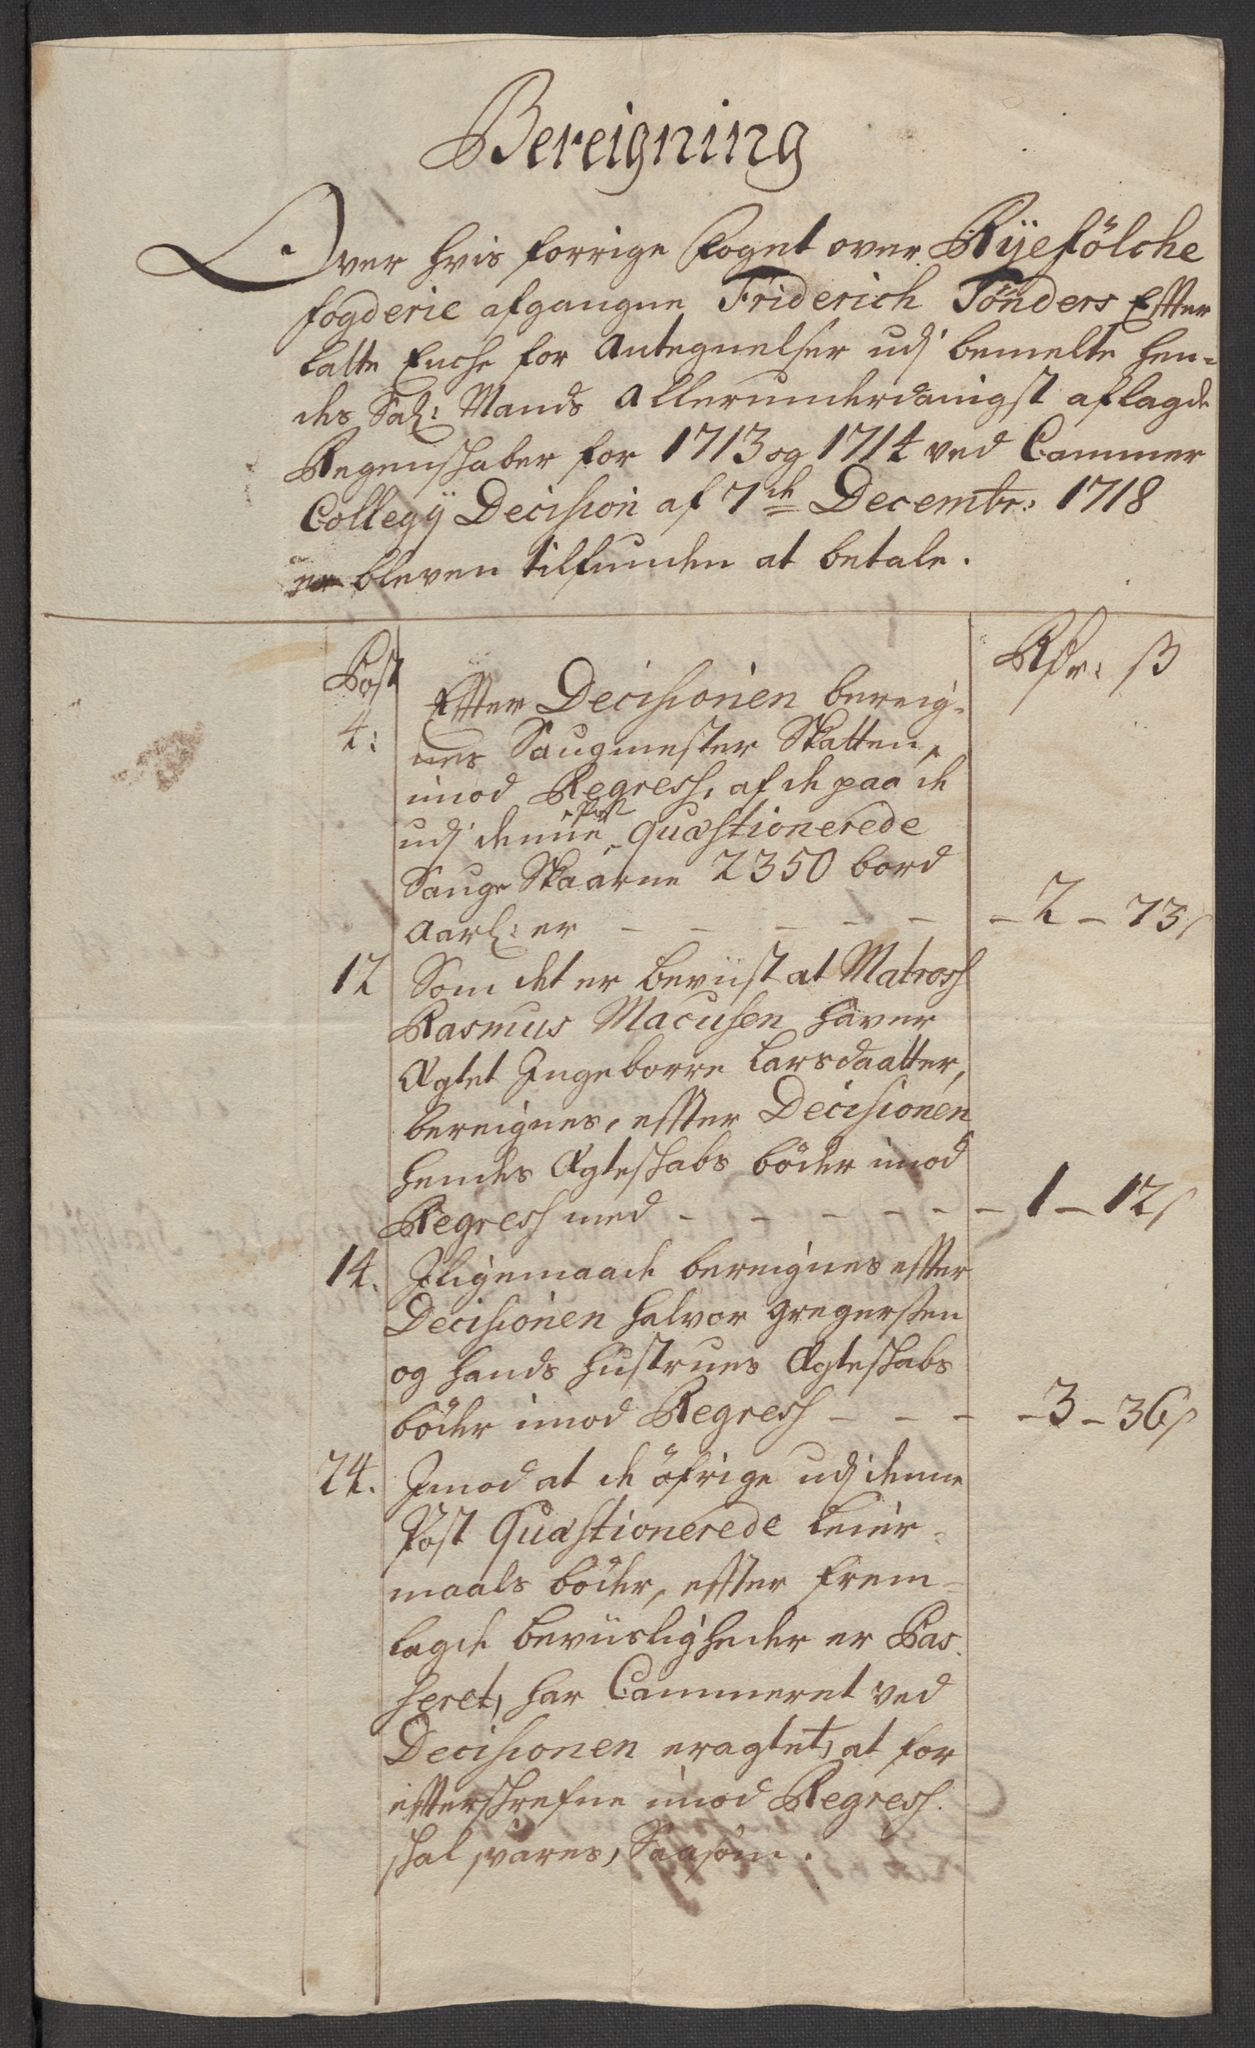 Bereigning
Over hvis forrige Foget over Ryefölche
fogderie afgangne Friderich Tönders Effter
latte Enche for Antegnelser udj bemelte hen-
des Sal: Mands Allerunderdanigst aflagde
Regenskaber for 1713 og 1714 ved Cammer
Collegij Decision af 7de Decembr: 1718
er bleven tilfunden at betale.
Post
Rdr: ß
4: Effter Decisionen bereig-
nes Saugmester Skatten,
imod Regress, af de paa de
udj denne Post Quæstionerede
Sauge Skaarne 2350 bord
Aarl: er - - - - - - 2 - 73 ß
12 Som det er beviist at Matross
Rasmus Macusen haver
Ægtet Ingeborre Larsdaatter,
bereignes, effter Decisionen
hendes Ægteskabs böder imod
Regress med - - - - - - 1 - 12 ß
14. Iligemaade bereignes effter
Decisionen Halvor Gregerssen
og hands hustrues Ægteskabs
böder imod Regress - - - - 3 - 36 ß
24. Imod at de öfrige udj denne
Post Quæstionerede Leier-
maals böder, effter frem-
lagde beviisligheder er Pas-
seret, har Cammeret ved
Decisionen eragtet, at for
effterskrefne imod Regress
skal svares, Saasom.